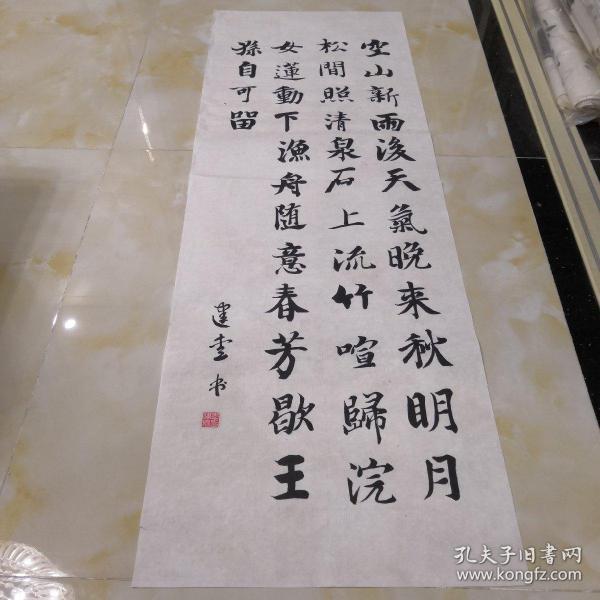 空山新雨後天氣晚来秋明月
松間照清泉石上流竹喧歸浣
女蓮動下漁舟随意春芳歇王
孫自可留
建雲书
孔夫子旧书网
www.kongfz.com